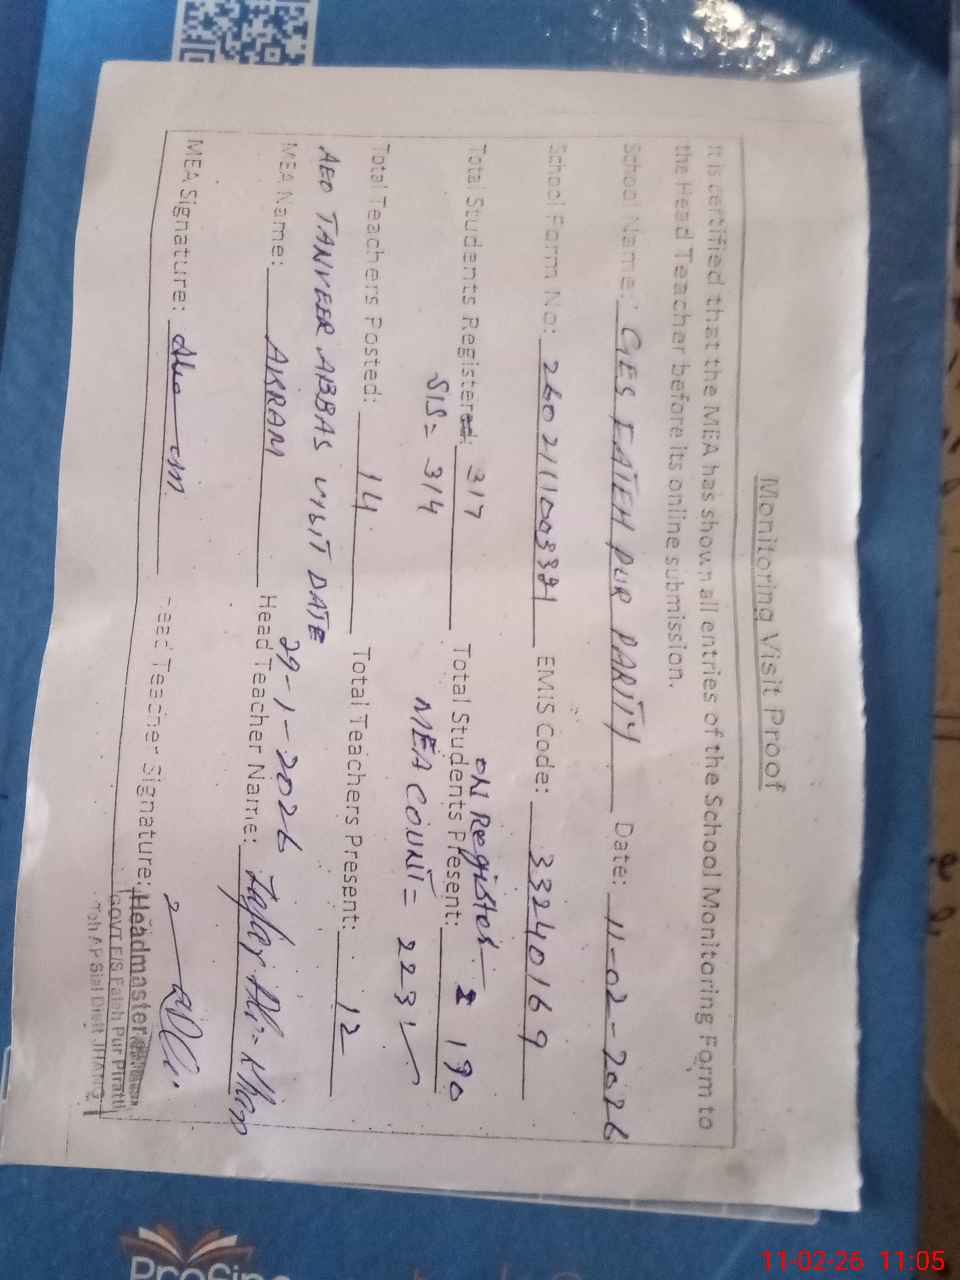 Monitoring Visit Proof
It is certified that the MEA has shown all entries of the School Monitoring Form to
the Head Teacher before its online submission.
School Name: GES FATEH PUR PARITY Date: 11-02-2026
School Form No: EMIS Code: 33240169
ON Register
Total Students Registered: 317 Total Students Present: 190
SIS = 314 MEA COUNT = 223
Total Teachers Posted: 14 Total Teachers Present: 12
AEO TANVEER ABBAS VISIT DATE 29-1-2026
MEA Name: AKRAM Head Teacher Name: Zafar Ali Khan
MEA Signature: Head Teacher Signature:
Headmaster
GOVT E/S Fateh Pur Piratti
Teh AP Sial Distt JHANG
11-02-26 11:05